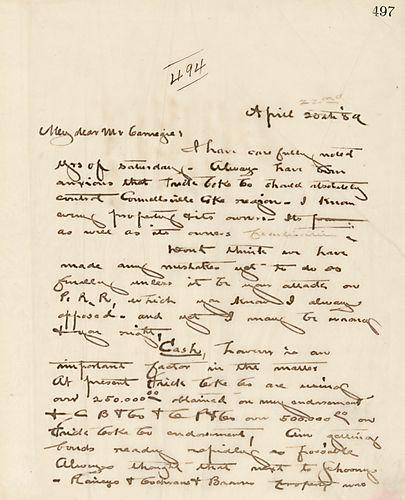 497
494
22nd
April 20th '89
My dear Mr Carnegie:
I have carefully noted
yrs of Saturday. Always have been
anxious that Frick Coke Co should absolutely
control Connellsville Coke region. I know
every property & its owner. Its
as well as its owners
Dont think we have
made any mistakes yet to do so
finally unless it be your attacks on
P.R.R, which you know I always
opposed - and yet I may be wrong
& you right,
Cash, however is an
important factor in this matter
At present Frick Coke Co are using
over 250.000 00 obtained on my endorsement
& C B & Co & C P & Co over 500.000 00 on
Frick Coke Co endorsement, Am getting
bonds ready rapidly as possible
Always thought that next to Schoonmaker
- Raineys & Cochran & Browns property was